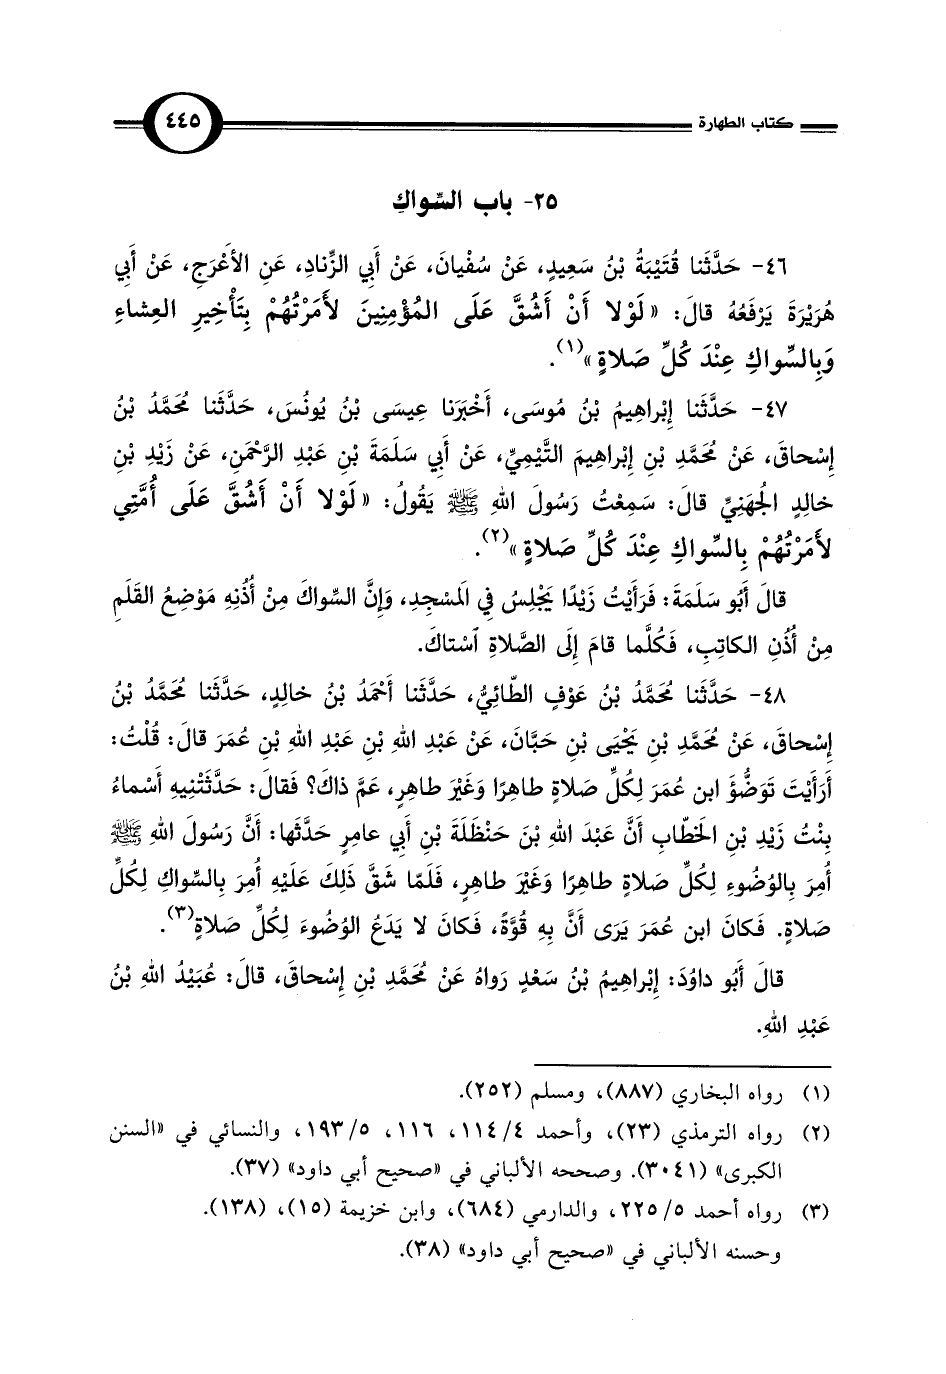 كتاب الطهارة ٤٤٥
٢٥- باب السِّواكِ
٤٦- حَدَّثَنا قُتَيْبَةُ بْنُ سَعِيدٍ، عَنْ سُفْيانَ، عَنْ أَبي الزِّنادِ، عَنِ الأَعْرَجِ، عَنْ أَبي
هُرَيْرَةَ يَرْفَعُهُ قالَ: « لَوْلا أَنْ أَشُقَّ عَلَى المُؤْمِنِينَ لأَمَرْتُهُمْ بِتَأْخِيرِ العِشاءِ
وَبِالسِّواكِ عِنْدَ كُلِّ صَلاةٍ »(١).
٤٧- حَدَّثَنا إِبْراهِيمُ بْنُ مُوسَى، أَخْبَرَنا عِيسَى بْنُ يُونُسَ، حَدَّثَنا مُحَمَّدُ بْنُ
إِسْحاقَ، عَنْ مُحَمَّدِ بْنِ إِبْراهِيمَ التَّيْمِيِّ، عَنْ أَبي سَلَمَةَ بْنِ عَبْدِ الرَّحْمَنِ، عَنْ زَيْدِ بْنِ
خالِدٍ الجُهَنِيِّ قالَ: سَمِعْتُ رَسُولَ اللهِ ﷺ يَقُولُ: « لَوْلا أَنْ أَشُقَّ عَلَى أُمَّتِي
لأَمَرْتُهُمْ بِالسِّواكِ عِنْدَ كُلِّ صَلاةٍ »(٢).
قالَ أَبُو سَلَمَةَ: فَرَأَيْتُ زَيْدًا يَجْلِسُ فِي المَسْجِدِ، وَإِنَّ السِّواكَ مِنْ أُذُنِهِ مَوْضِعُ القَلَمِ
مِنْ أُذُنِ الكاتِبِ، فَكُلَّما قامَ إِلَى الصَّلاةِ ٱسْتاكَ.
٤٨- حَدَّثَنا مُحَمَّدُ بْنُ عَوْفٍ الطّائِيُّ، حَدَّثَنا أَحْمَدُ بْنُ خالِدٍ، حَدَّثَنا مُحَمَّدُ بْنُ
إِسْحاقَ، عَنْ مُحَمَّدِ بْنِ يَحْيَى بْنِ حَبَّانَ، عَنْ عَبْدِ اللهِ بْنِ عَبْدِ اللهِ بْنِ عُمَرَ قالَ: قُلْتُ:
أَرَأَيْتَ تَوَضُّؤَ ابن عُمَرَ لِكُلِّ صَلاةٍ طاهِرًا وَغَيْرَ طاهِرٍ، عَمَّ ذاكَ؟ فَقالَ: حَدَّثَتْنِيهِ أَسْماءُ
بِنْتُ زَيْدِ بْنِ الخَطّابِ أَنَّ عَبْدَ اللهِ بْنَ حَنْظَلَةَ بْنِ أَبي عامِرٍ حَدَّثَها: أَنَّ رَسُولَ اللهِ ﷺ
أُمِرَ بِالوُضُوءِ لِكُلِّ صَلاةٍ طاهِرًا وَغَيْرَ طاهِرٍ، فَلَمّا شَقَّ ذَلِكَ عَلَيْهِ أُمِرَ بِالسِّواكِ لِكُلِّ
صَلاةٍ. فَكانَ ابن عُمَرَ يَرَى أَنَّ بِهِ قُوَّةً، فَكانَ لا يَدَعُ الوُضُوءَ لِكُلِّ صَلاةٍ(٣).
قالَ أَبُو داوُدَ: إِبْراهِيمُ بْنُ سَعْدٍ رَواهُ عَنْ مُحَمَّدِ بْنِ إِسْحاقَ، قالَ: عُبَيْدُ اللهِ بْنُ
عَبْدِ اللهِ.
(١) رواه البخاري (٨٨٧)، ومسلم (٢٥٢).
(٢) رواه الترمذي (٢٣)، وأحمد ٤/ ١١٤، ١١٦، ٥/ ١٩٣، والنسائي في «السنن
الكبرى» (٣٠٤١). وصححه الألباني في «صحيح أبي داود» (٣٧).
(٣) رواه أحمد ٥/ ٢٢٥، والدارمي (٦٨٤)، وابن خزيمة (١٥)، (١٣٨).
وحسنه الألباني في «صحيح أبي داود» (٣٨).